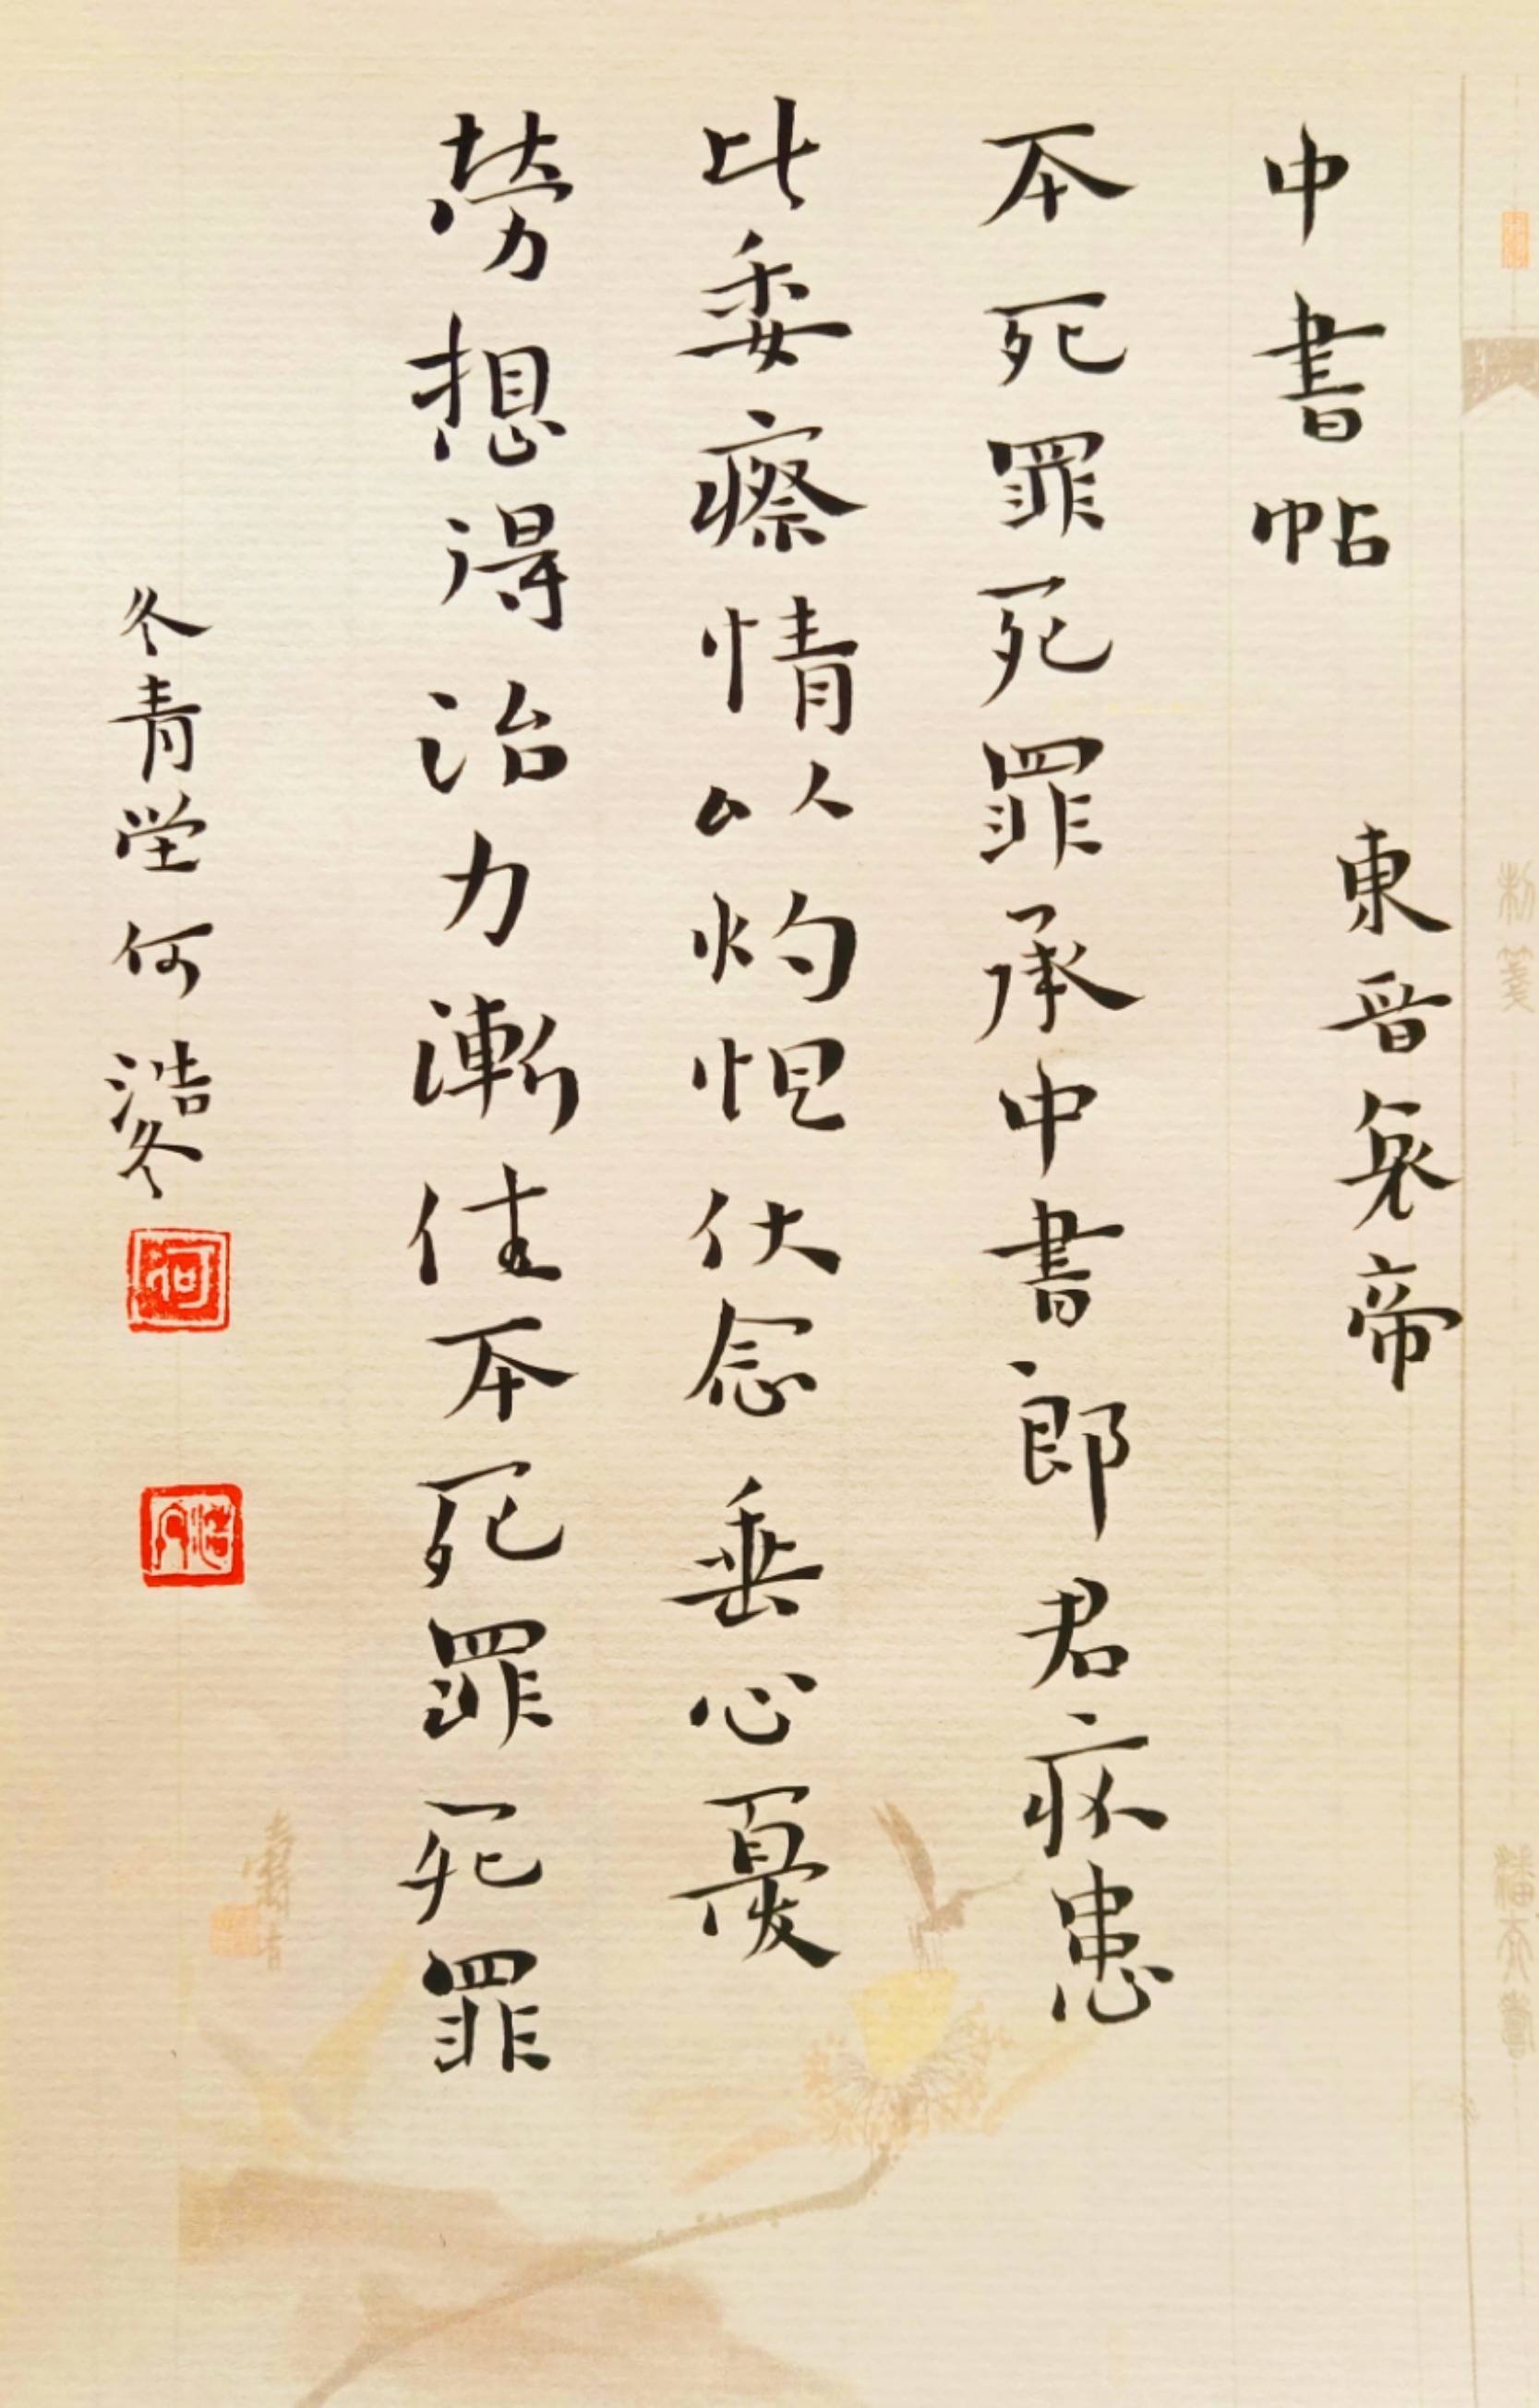 中書帖
東晉哀帝
夲死罪死罪承中書郎君疾患
比委瘵情以灼怛伏念垂心憂
勞想得治力漸佳夲死罪死罪
冬青堂何浩冬
何